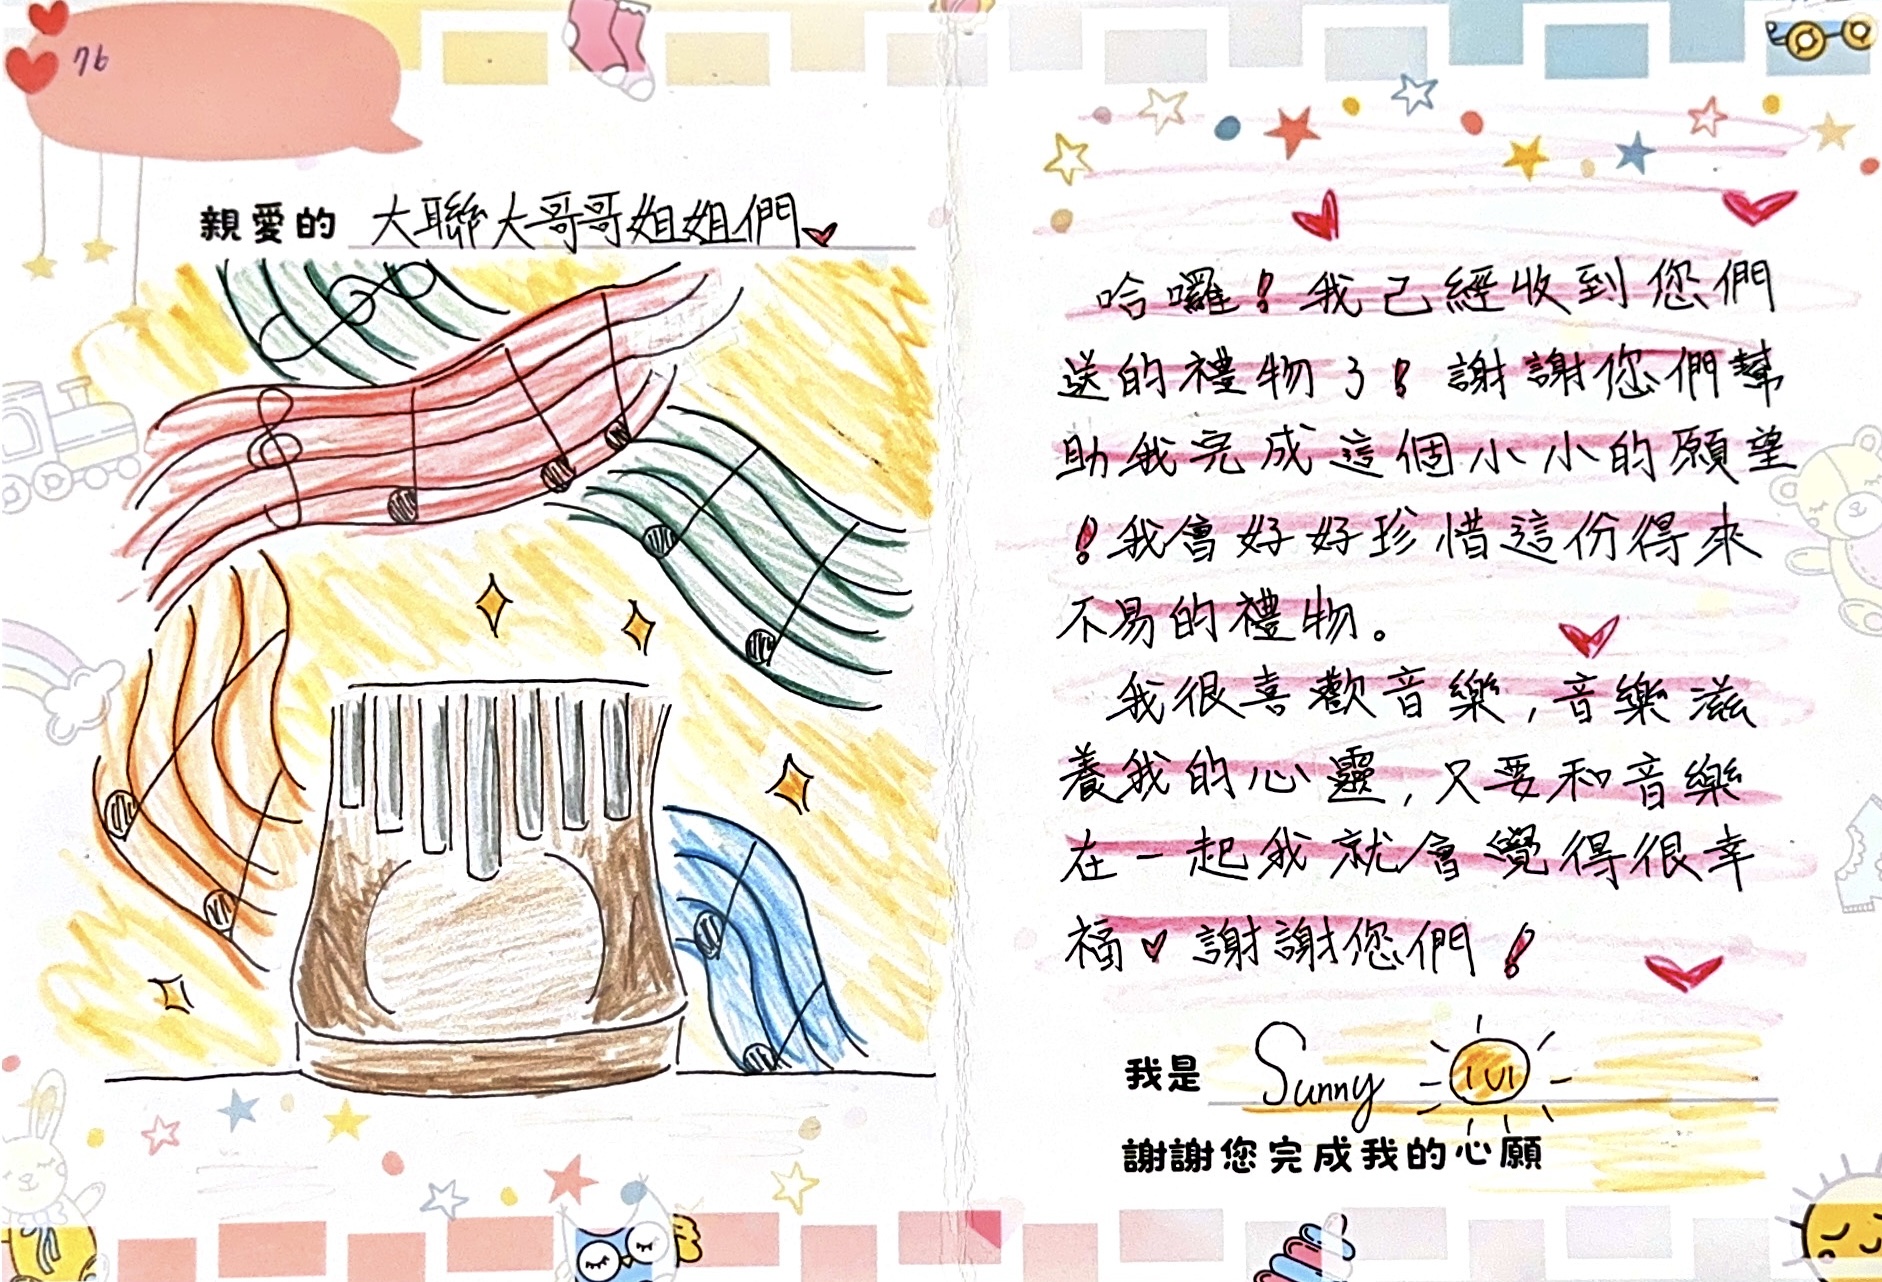 76
親愛的 大聯大哥哥姐姐們
哈囉！我己經收到您們
送的禮物了！謝謝您們幫
助我完成這個小小的願望
！我會好好珍惜這份得來
不易的禮物。
我很喜歡音樂，音樂滋
養我的心靈，只要和音樂
在一起我就會覺得很幸
福♥謝謝您們！
我是 Sunny
謝謝您完成我的心願